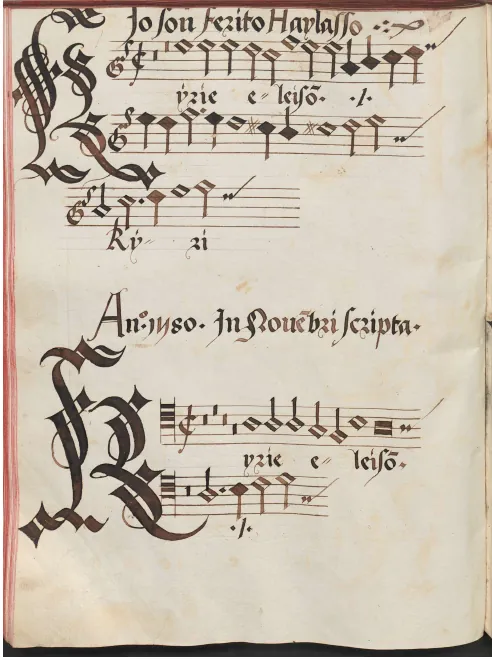 Jo son ferito Haylasso
Kyrie e-leisō. ·/·
Ky- ri
An.º 1580. In Nouēbri scripta.
Kyrie e- leisō.
·/·